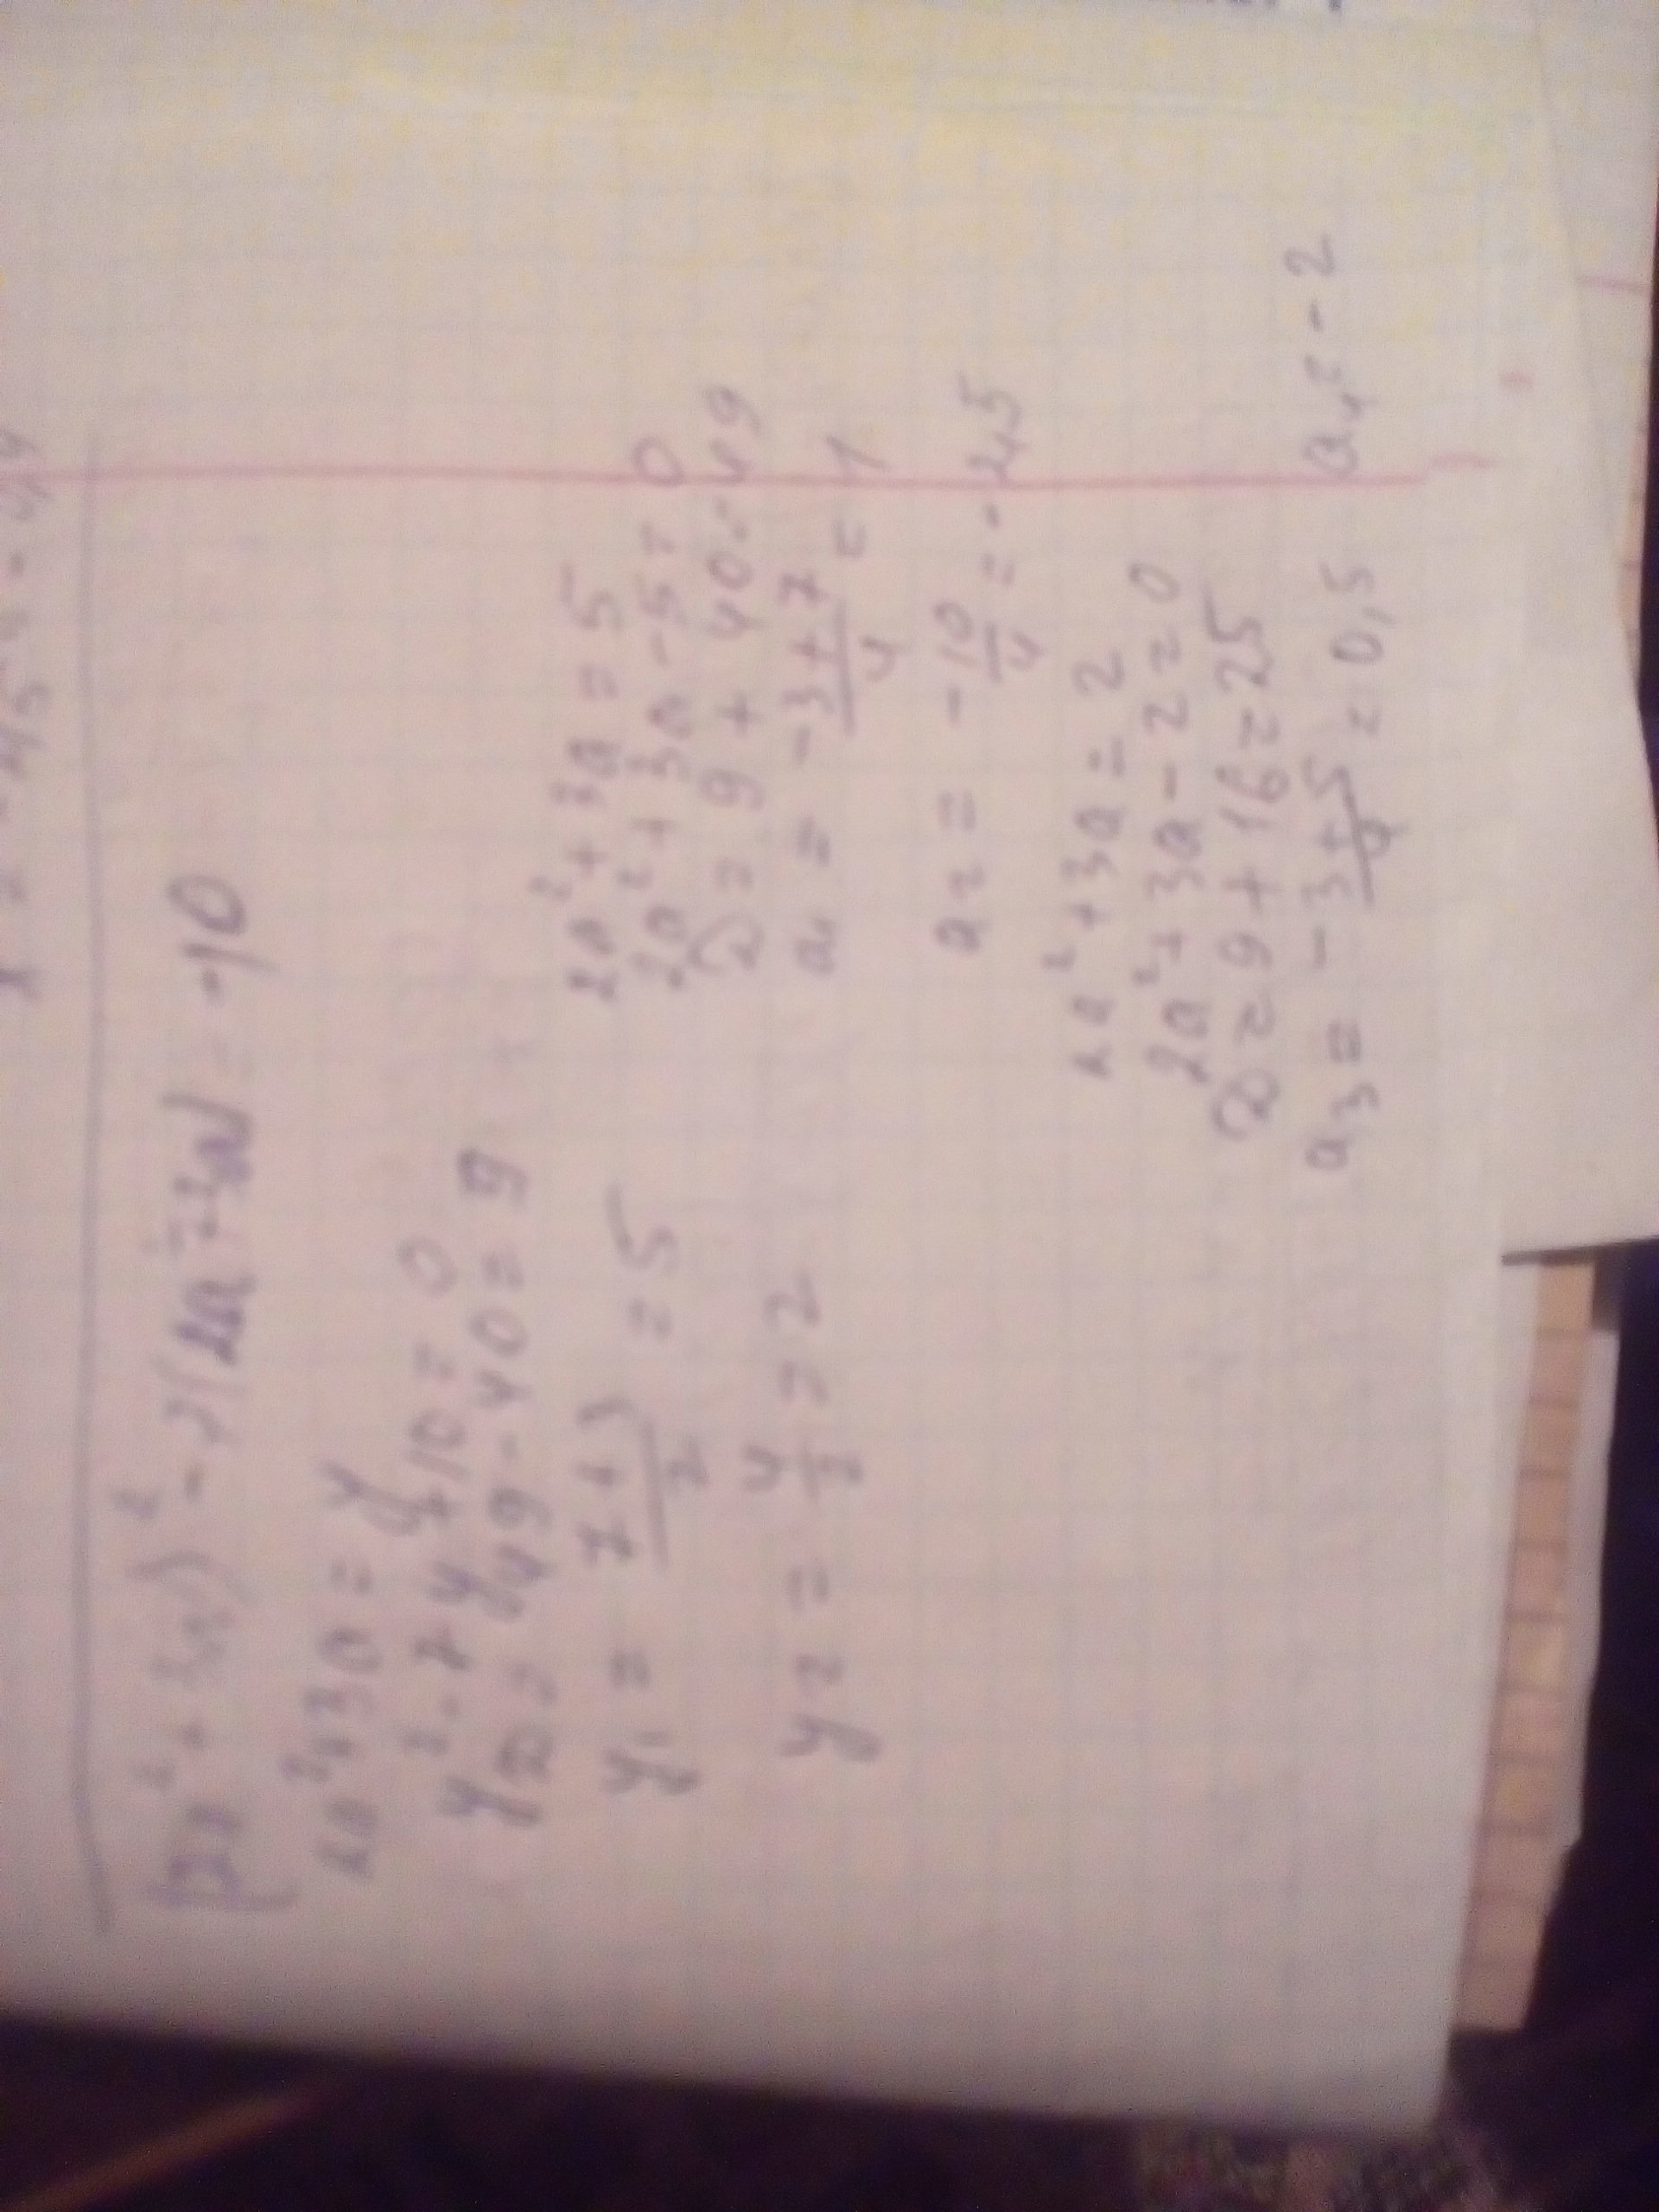 (2a² + 3a)² - 7(2a² + 3a) = -10
2a² + 3a = y
y² - 7y + 10 = 0
D = 49 - 40 = 9
y₁ = (7 + 3)/2 = 5
y₂ = 4/2 = 2
2a² + 3a = 5
2a² + 3a - 5 = 0
D = 9 + 40 = 49
a₁ = (-3 + 7)/4 = 1
a₂ = -10/4 = -2,5
2a² + 3a = 2
2a² + 3a - 2 = 0
D = 9 + 16 = 25
a₃ = (-3 + 5)/4 = 0,5 a₄ = -2